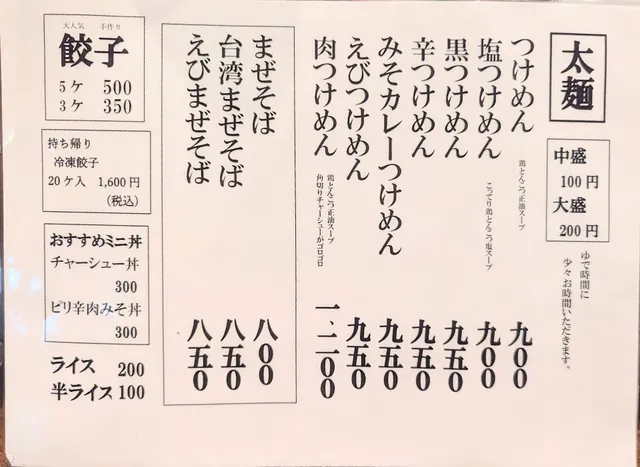 太麺
中盛
100円
大盛
200円
ゆで時間に
少々お時間いただきます。
つけめん 鶏とんこつ正油スープ 九00
塩つけめん こってり鶏とんこつ塩スープ 九00
黒つけめん 九五0
辛つけめん 九五0
みそカレーつけめん 九五0
えびつけめん 九五0
肉つけめん 鶏とんこつ正油スープ
角切りチャーシューがゴロゴロ
一、二00
まぜそば 八00
台湾まぜそば 八五0
えびまぜそば 八五0
大人気 手作り
餃子
5ケ 500
3ケ 350
持ち帰り
冷凍餃子
20ケ入 1,600円
(税込)
おすすめミニ丼
チャーシュー丼
300
ピリ辛肉みそ丼
300
ライス 200
半ライス 100